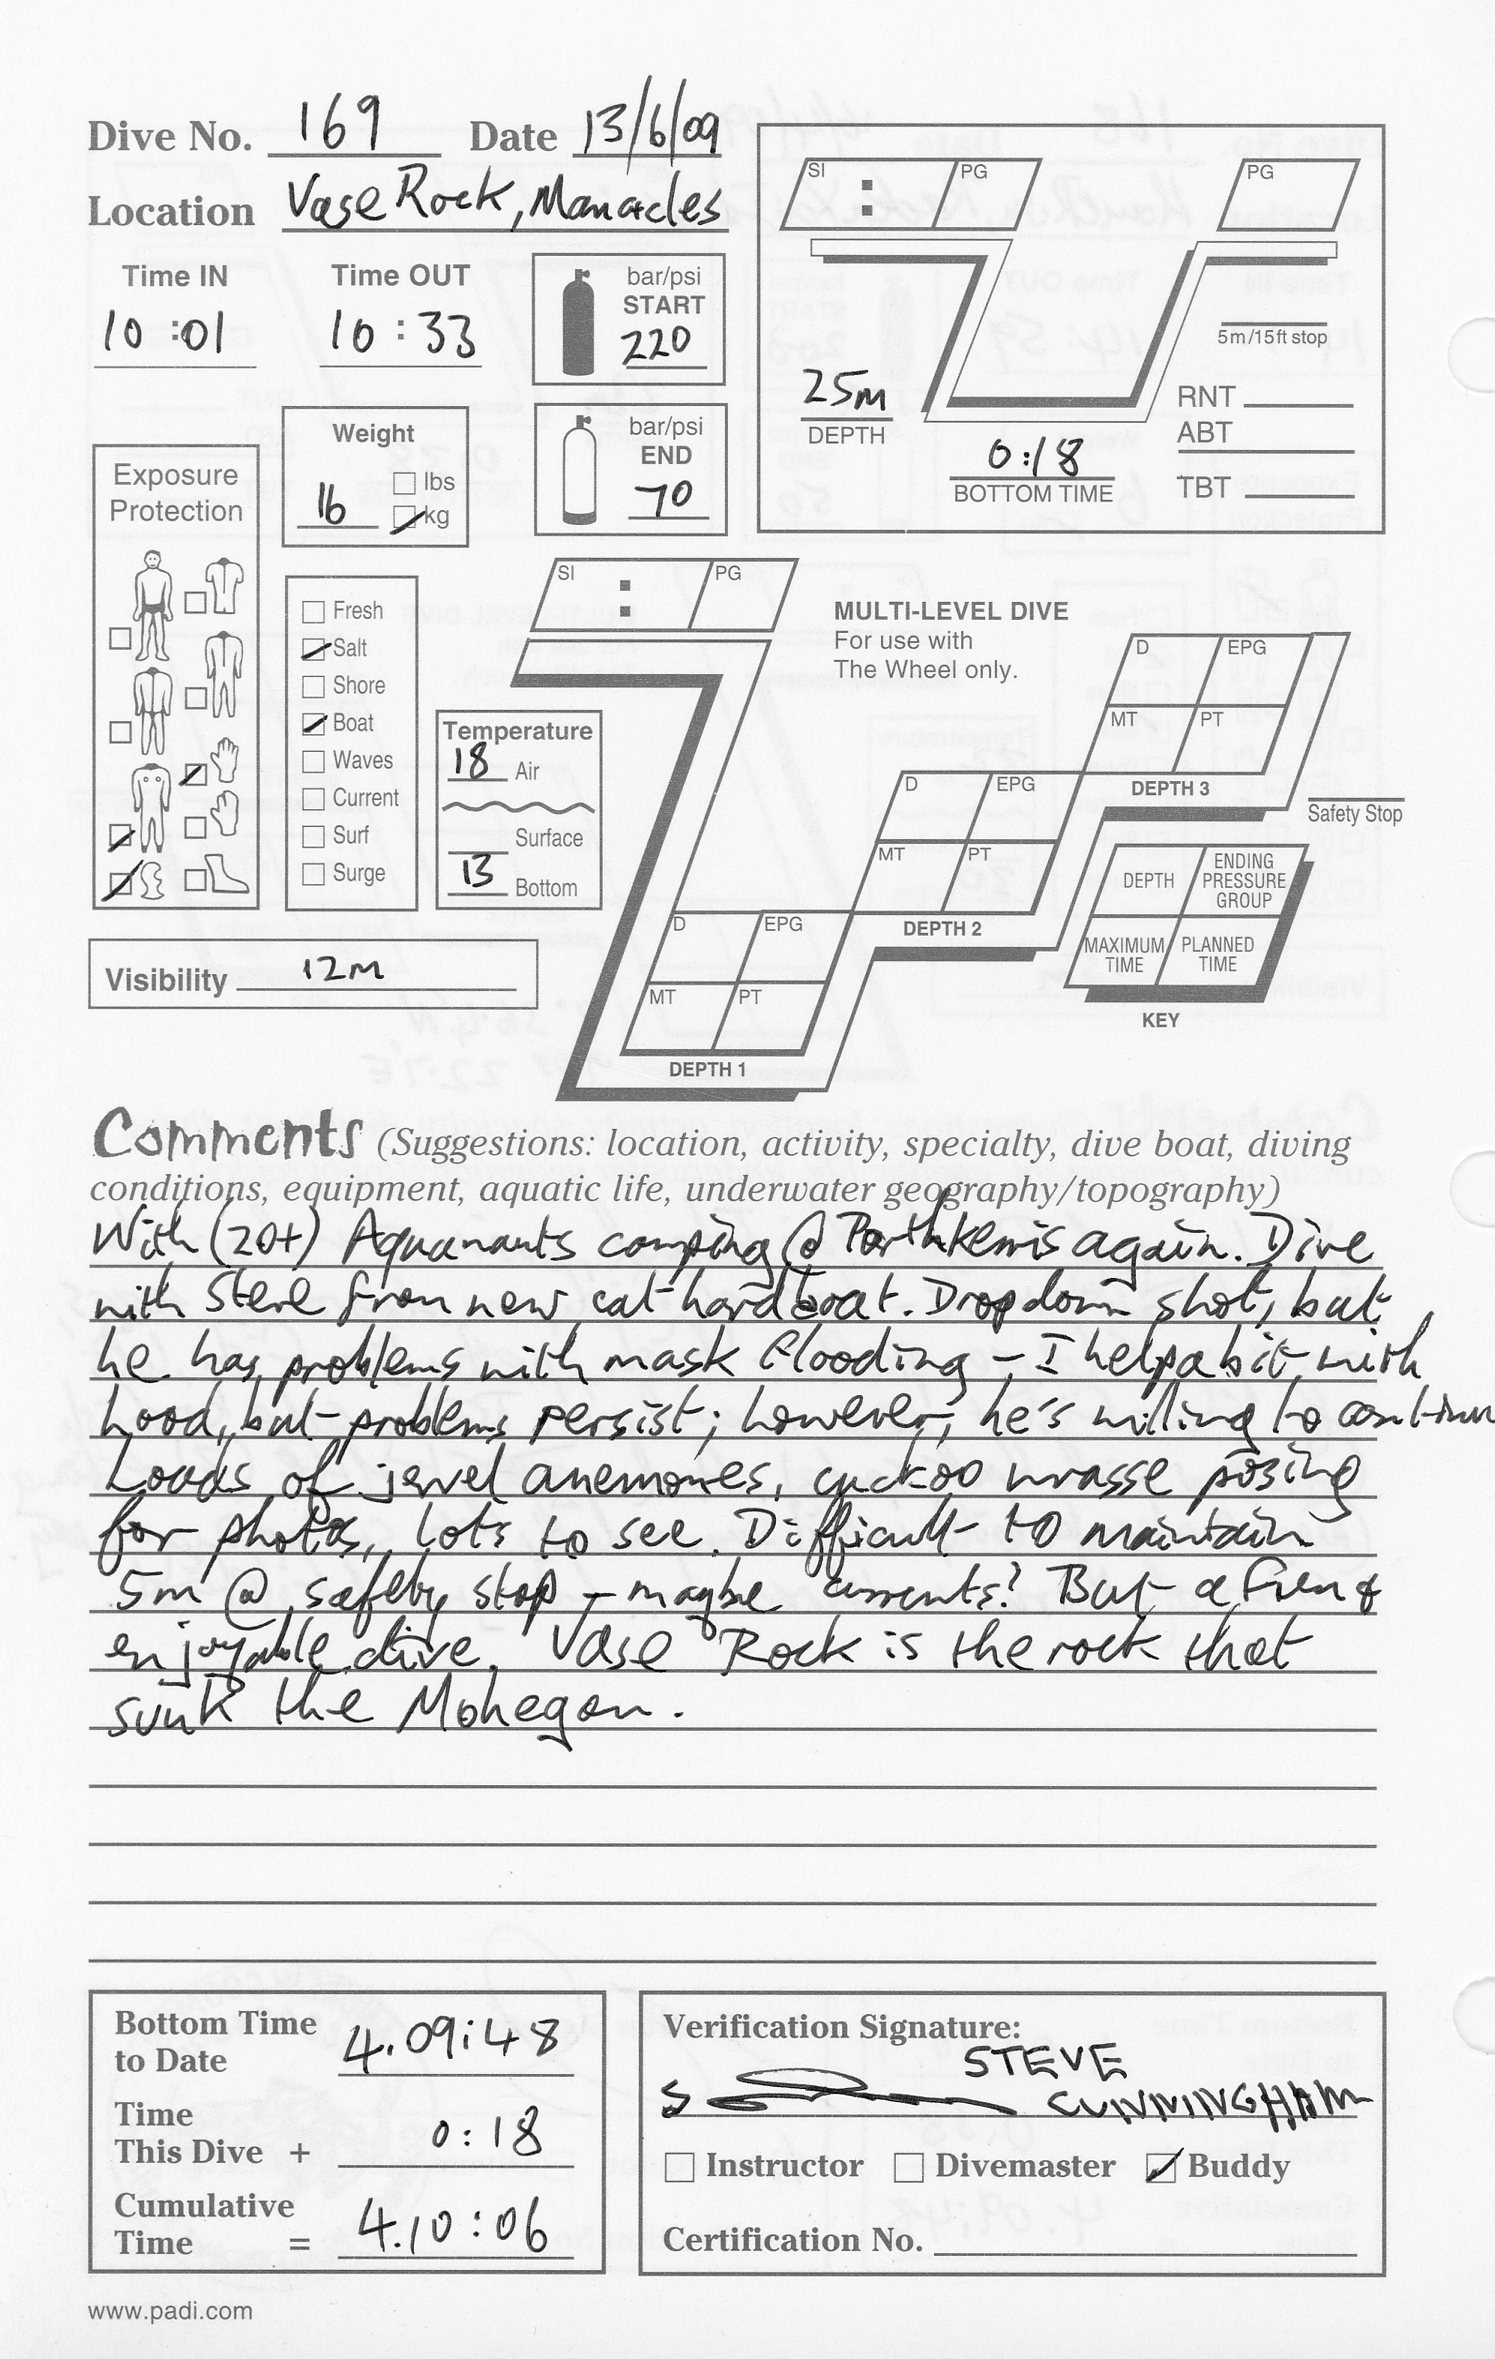 Dive No. 169 Date 13/6/09
Location Vase Rock, Manacles
Time IN Time OUT
10:01 10:33
bar/psi
START
220
bar/psi
END
70
Weight
16
lbs
kg
Exposure
Protection
Fresh
Salt
Shore
Boat
Waves
Current
Surf
Surge
Temperature
18 Air
Surface
13 Bottom
Visibility 12m
SI : PG
PG
5m/15ft stop
25m
DEPTH
0:18
BOTTOM TIME
RNT
ABT
TBT
SI : PG
MULTI-LEVEL DIVE
For use with
The Wheel only.
D EPG
MT PT
DEPTH 3
Safety Stop
D EPG
MT PT
DEPTH 2
D EPG
MT PT
DEPTH 1
DEPTH
ENDING
PRESSURE
GROUP
MAXIMUM
TIME
PLANNED
TIME
KEY
Comments (Suggestions: location, activity, specialty, dive boat, diving
conditions, equipment, aquatic life, underwater geography/topography)
With (20+) Aquanauts camping @ Porthkerris again. Dive
with Steve from new cat hardboat. Drop down shot, but
he has problems with mask flooding – I help a bit with
hood, but problems persist; however, he's willing to continue
Loads of jewel anemones, cuckoo wrasse posing
for photos, lots to see. Difficult to maintain
5m @ safety stop – maybe currents? But a fun &
enjoyable dive. Vase Rock is the rock that
sunk the Mohegan.
Bottom Time
to Date 4.09:48
Time
This Dive + 0:18
Cumulative
Time = 4.10:06
Verification Signature:
STEVE
CUNNINGHAM
Instructor Divemaster Buddy
Certification No.
www.padi.com